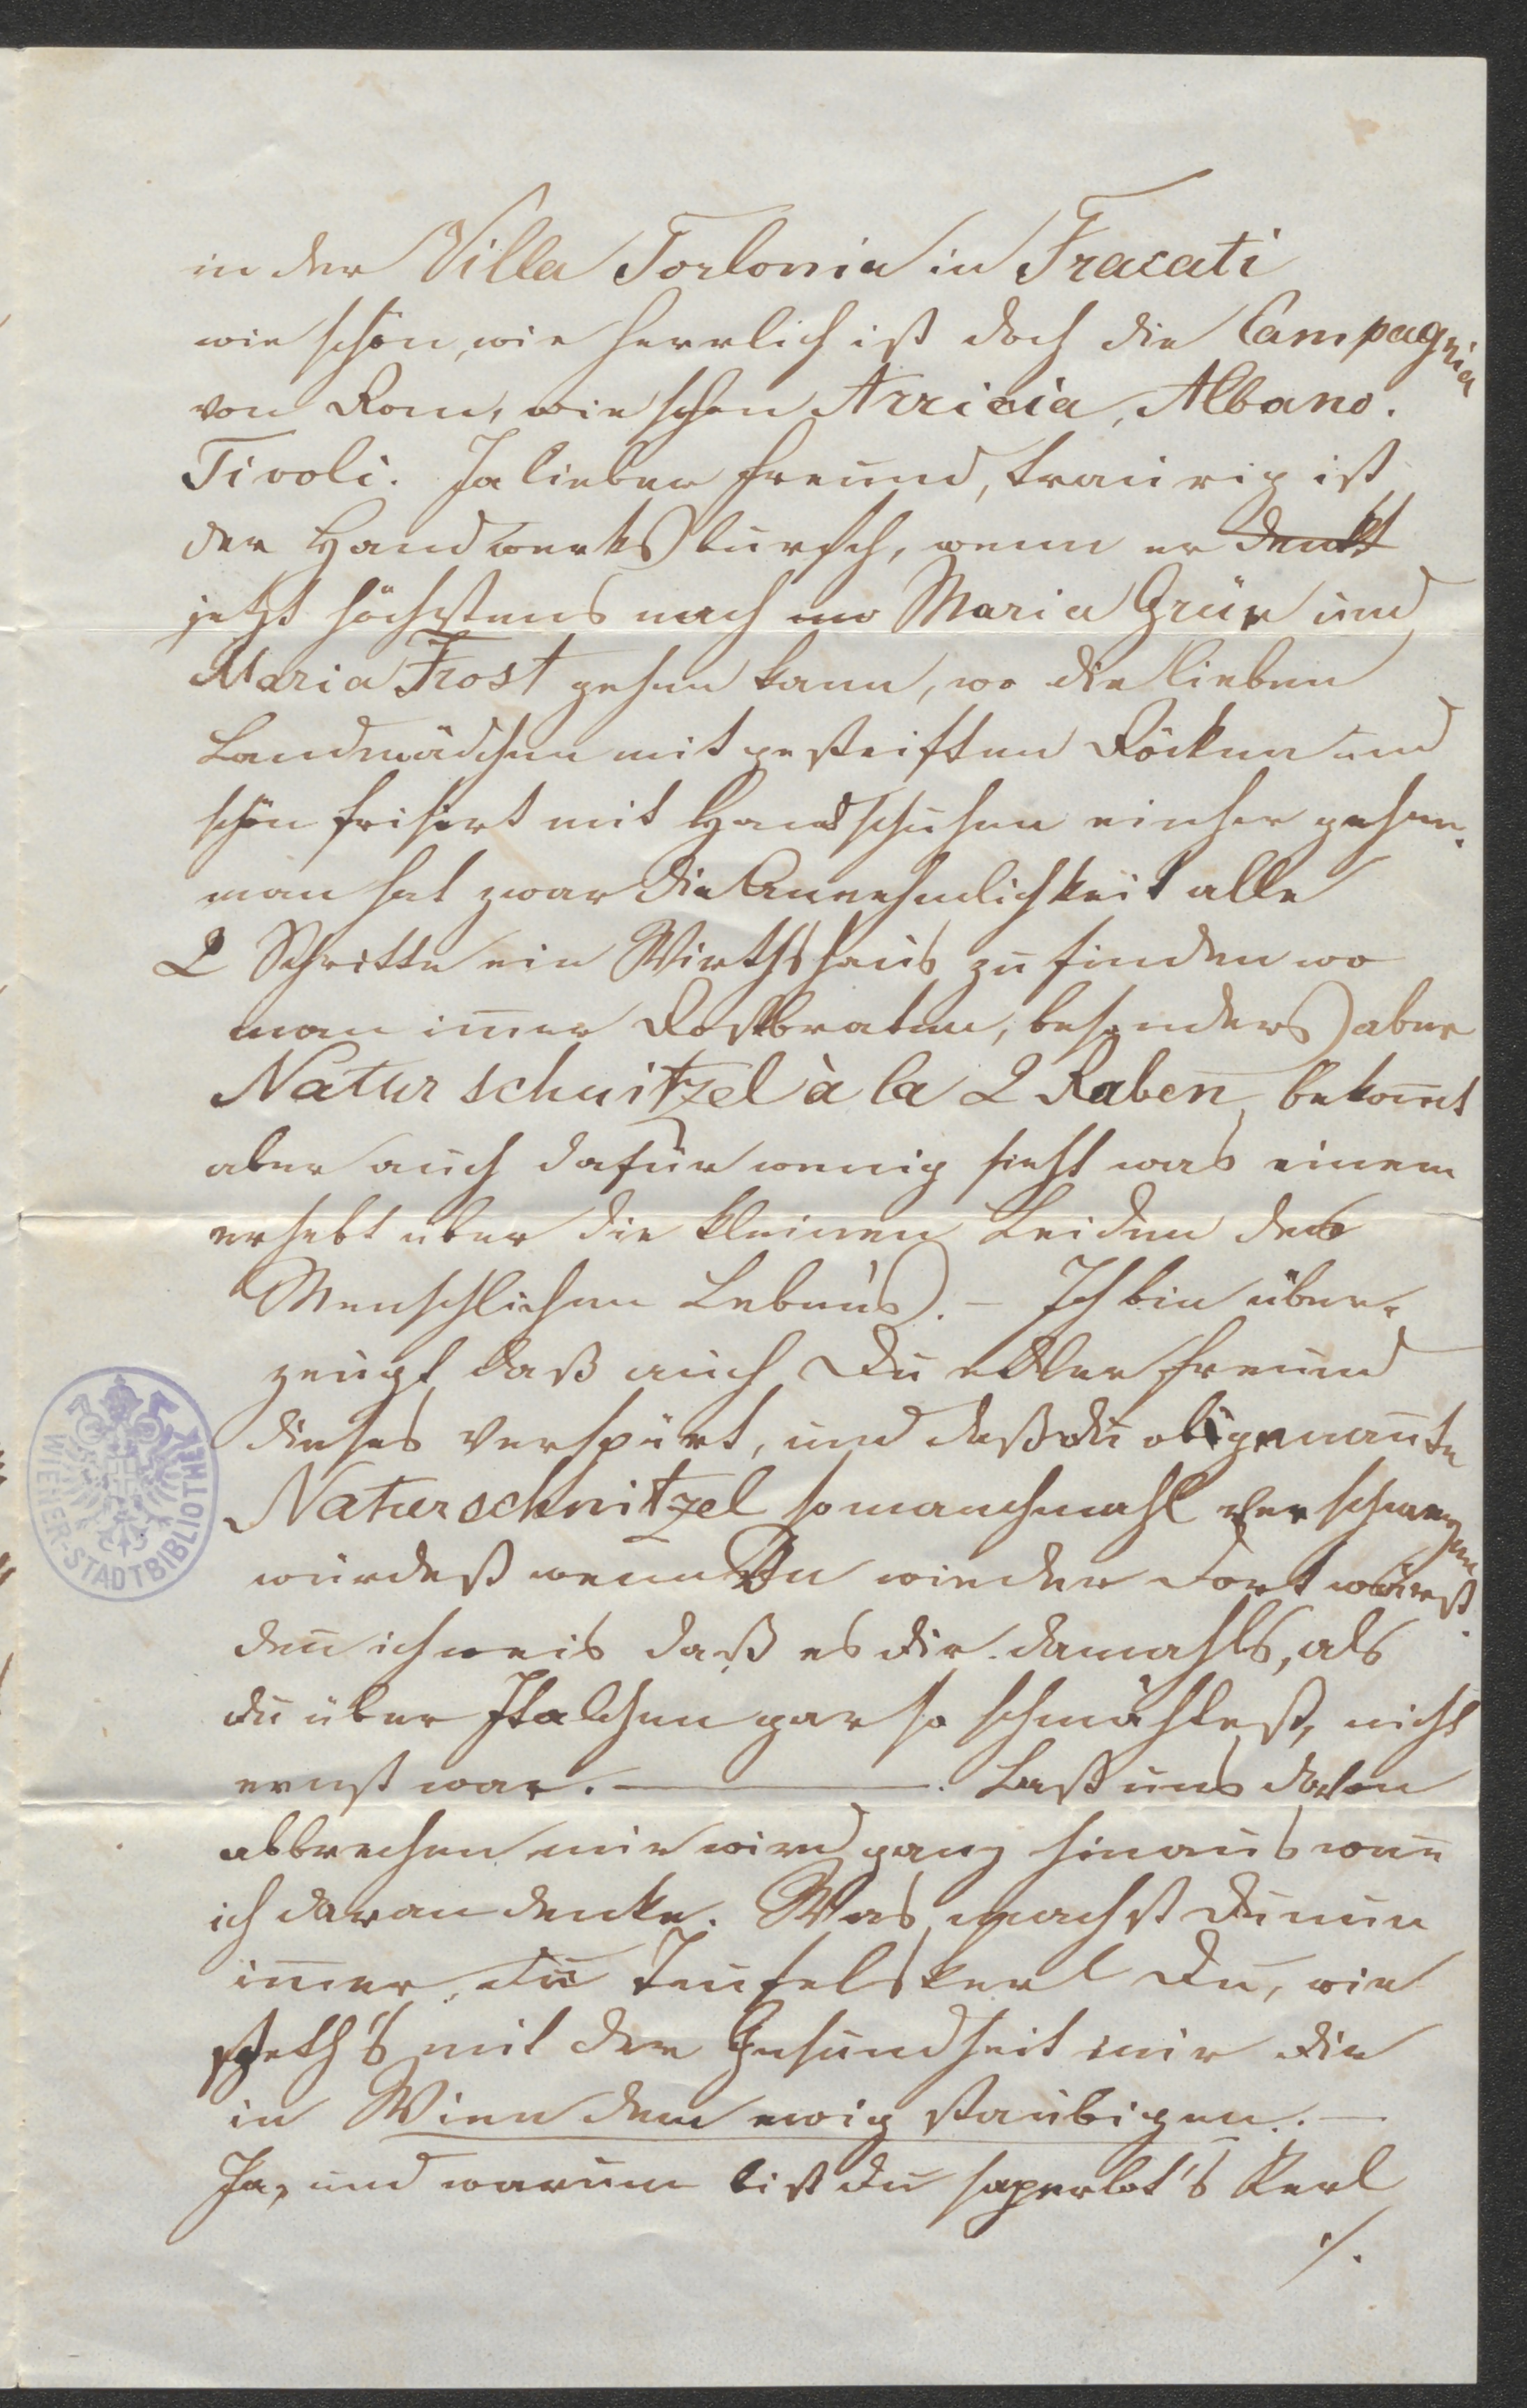 in der Villa Torlonia in Fracati
wie schön, wie herrlich ist doch die Campagnia
von Rom, wie schön Arricia, Albano.
Tivoli. Ja lieber Freund, traurig ist
der Handwerksbursch, wenn er denkt
jetzt höchstens nach Maria Grün und
Maria Trost gehen kann, wo die lieben
Landmädchen mit gesteiften Röcken und
schön frisirt mit Handschuhen einher gehen.
man hat zwar die Annehmlichkeit alle
2 Schritte ein Wirthshaus zu finden wo
man im̅er Rostbraten, besonders aber
Naturschnitzel à la 2 Raben bekom̅t
aber auch dafür wenig sieht was einem
erhebt über die kleinen Leiden des
Menschlichen Lebens. – Ich bin über-
zeugt daß auch Du edler Freund
dieses verspürt, und daß du obigenan̅te
Naturschnitzel so manchmahl verschmerzen
würdest wenn Du wieder dort wärest.
den̅ ich weis daß es dir damahls, als
du über Italien gar so schmähtest, nicht
ernst war. ———. Laß uns davon
abbrechen mir wird ganz hinaus wen̅
ich daran denke. Was machst du nun
im̅er, du Teufelskerl Du, wie
steth's mit der Gesundheit wie dir
in Wien dem ewig staubigen. –
Ja, und warum bist du saperlot's Kerl
./.
WIENER-STADTBIBLIOTHEK